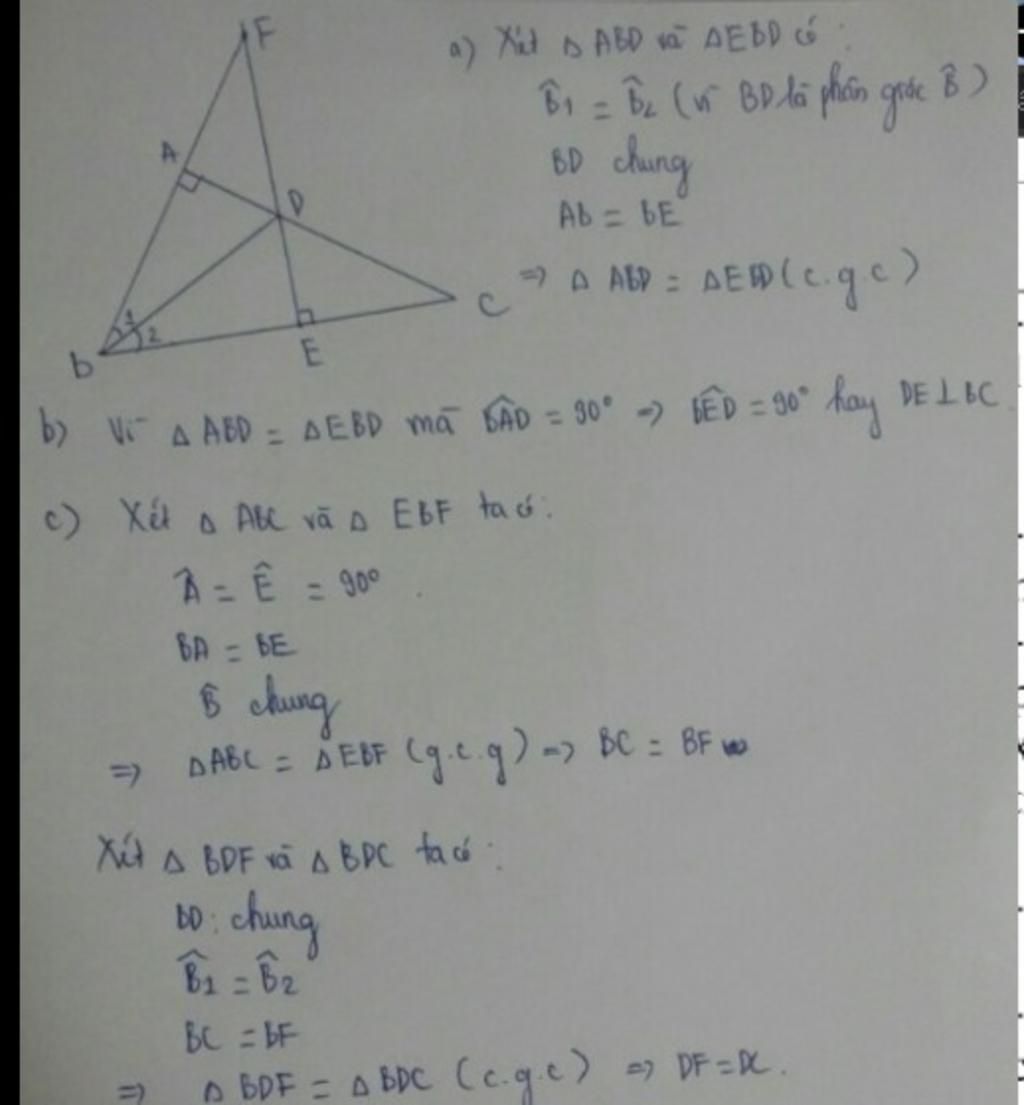 F
a) Xét Δ ABD và ΔEBD có :
B̂1 = B̂2 (vì BD là phân giác B̂)
A
BD chung
D
AB = BE
=> Δ ABD = ΔEBD (c.g.c)
C
1
2
B
E
b) Vì Δ ABD = ΔEBD mà BÂD = 90° => BÊD = 90° hay DE⊥BC
c) Xét Δ ABC và Δ EBF ta có:
 = Ê = 90°
BA = BE
B̂ chung
=> ΔABC = ΔEBF (g.c.g) => BC = BF
Xét Δ BDF và Δ BDC ta có :
BD: chung
B̂1 = B̂2
BC = BF
=> Δ BDF = Δ BDC (c.g.c) => DF = DC.